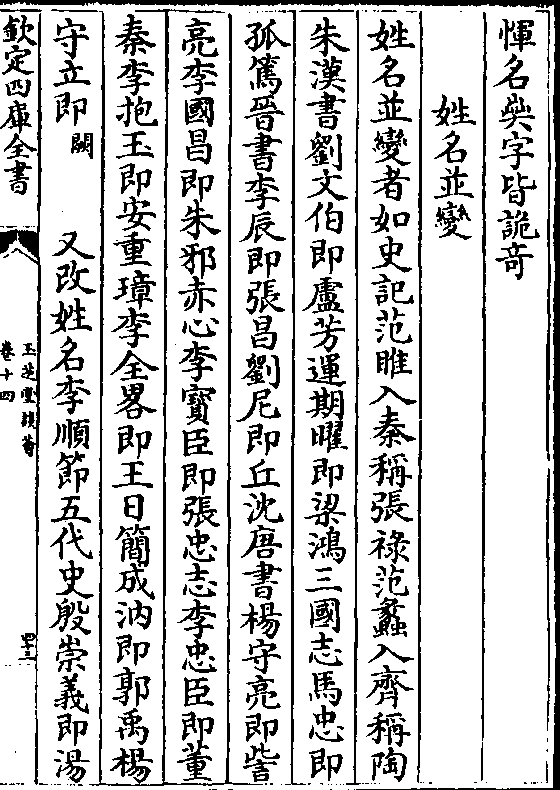 惲名㷟字皆詭奇
姓名並變
姓名並變者如史記范睢入秦稱張祿范蠡入齊稱陶
朱漢書劉文伯即盧芳運期曜即梁鴻三國志馬忠即
孤篤晉書李辰即張昌劉尼即丘沈唐書楊守亮即訾
亮李國昌即朱邪赤心李寶臣即張忠志李忠臣即董
秦李抱玉即安重璋李全畧即王日簡成汭即郭禹楊
守立即闕又改姓名李順節五代史殷崇義即湯
欽定四庫全書
玉芝堂談薈
卷十四
四十三